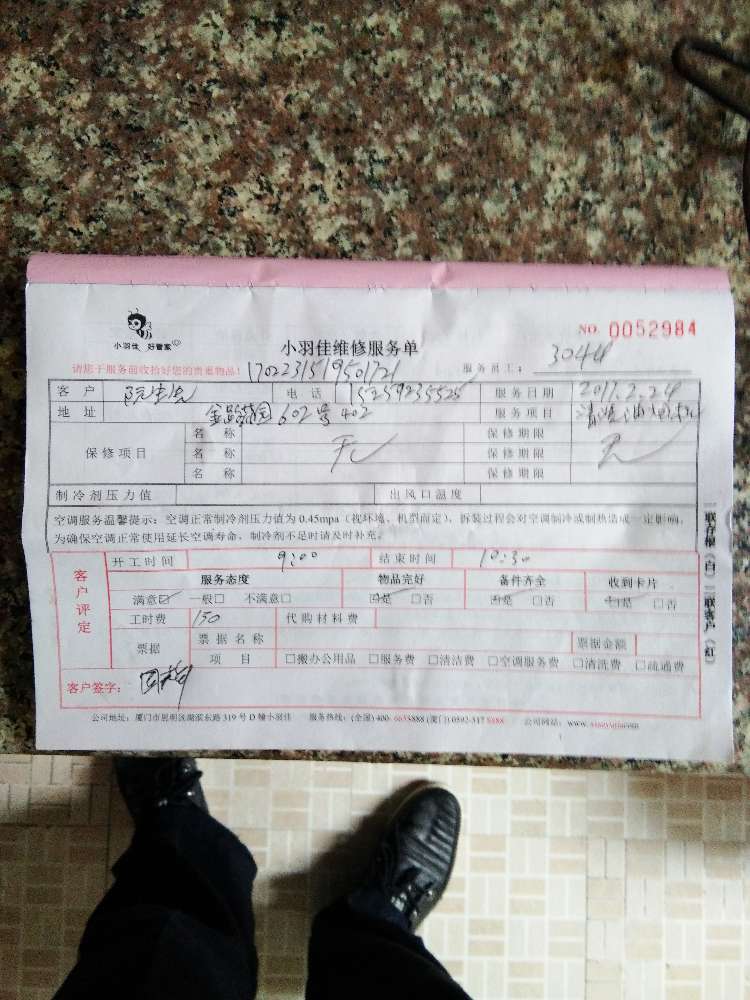 小羽佳 好管家
NO. 0052984
小羽佳维修服务单
请您于服务前收拾好您的贵重物品! 1702231519501721 服务员工: 3044
客户 阮先生 电话 15259235525 服务日期 2017.2.24
地址 602号402 服务项目 清洗油烟机
保修项目 名称 无 保修期限 无
名称 保修期限
名称 保修期限
制冷剂压力值 出风口温度
空调服务温馨提示: 空调正常制冷剂压力值为 0.45mpa (视环境、机型而定), 拆装过程会对空调制冷或制热造成一定影响,
为确保空调正常使用延长空调寿命, 制冷剂不足时请及时补充。
客户评定
开工时间 9:00 结束时间 10:30
服务态度 物品完好 备件齐全 收到卡片
满意☑ 一般□ 不满意□ ☑是 □否 ☑是 □否 ☑是 □否
工时费 150 代购材料费
票据 票据名称 票据金额
项目 □搬办公用品 □服务费 □清洁费 □空调服务费 □清洗费 □疏通费
客户签字:
公司地址: 厦门市思明区湖滨东路 319 号 D 幢小羽佳 服务热线: (全国) 400-6653888 (厦门) 0592-5178888 公司网站: www.xiaoyujia.com
一联存根(白) 二联客户(红)